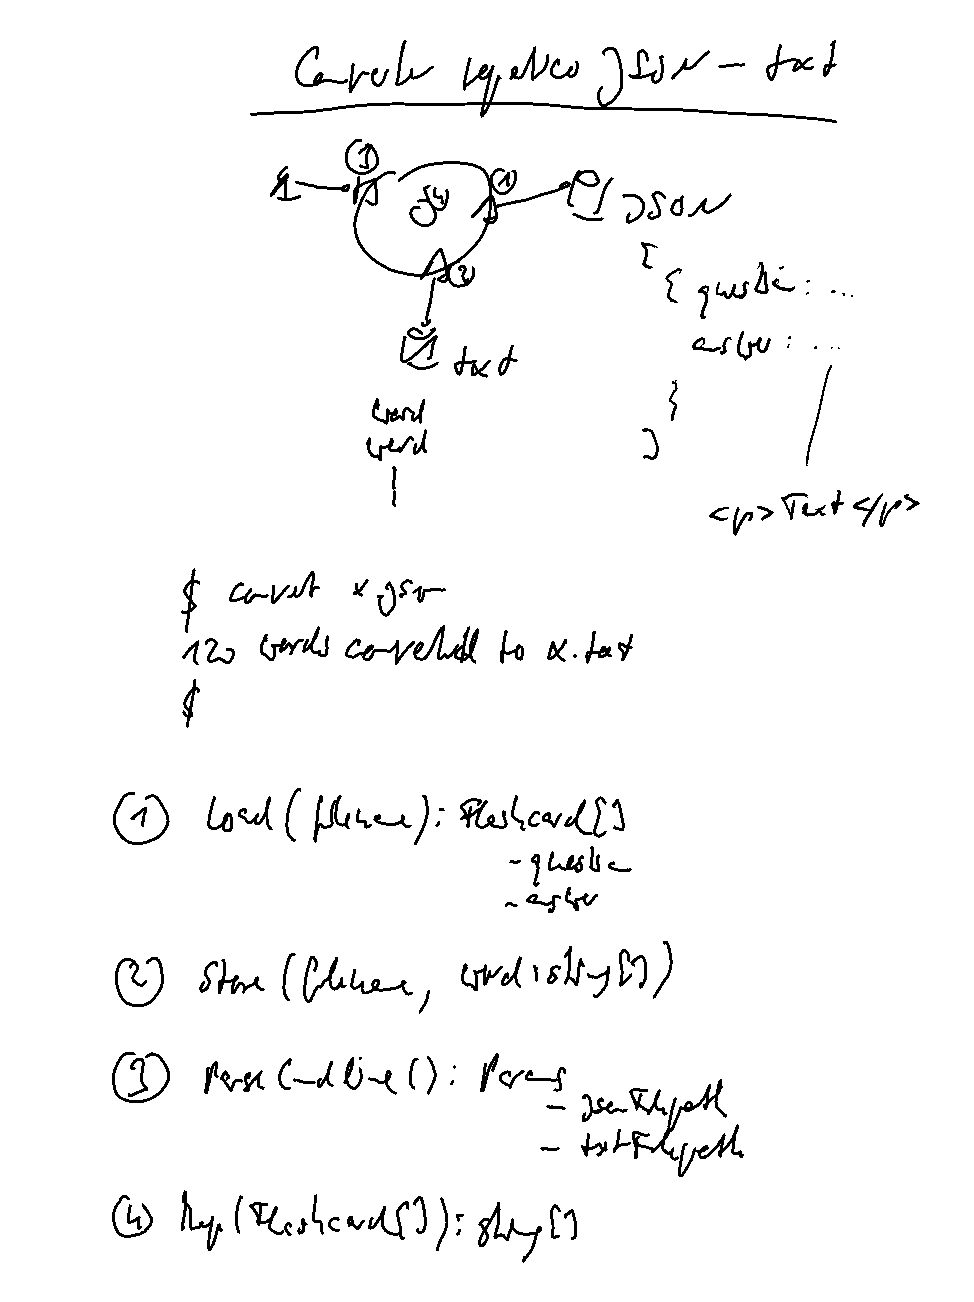 Convert repetico JSON - txt
③ ④ ①
JSON
②
[
{ question: ...
answer: ...
txt
word
word
}
]
<p>Text</p>
$ convert x.json
120 words converted to x.txt
$
① Load(filename): Flashcard[]
- question
- answer
② Store(filename, word:string[])
③ ParseCmdLine(): Params
- jsonFilepath
- txtFilepath
④ Map(Flashcard[]): string[]